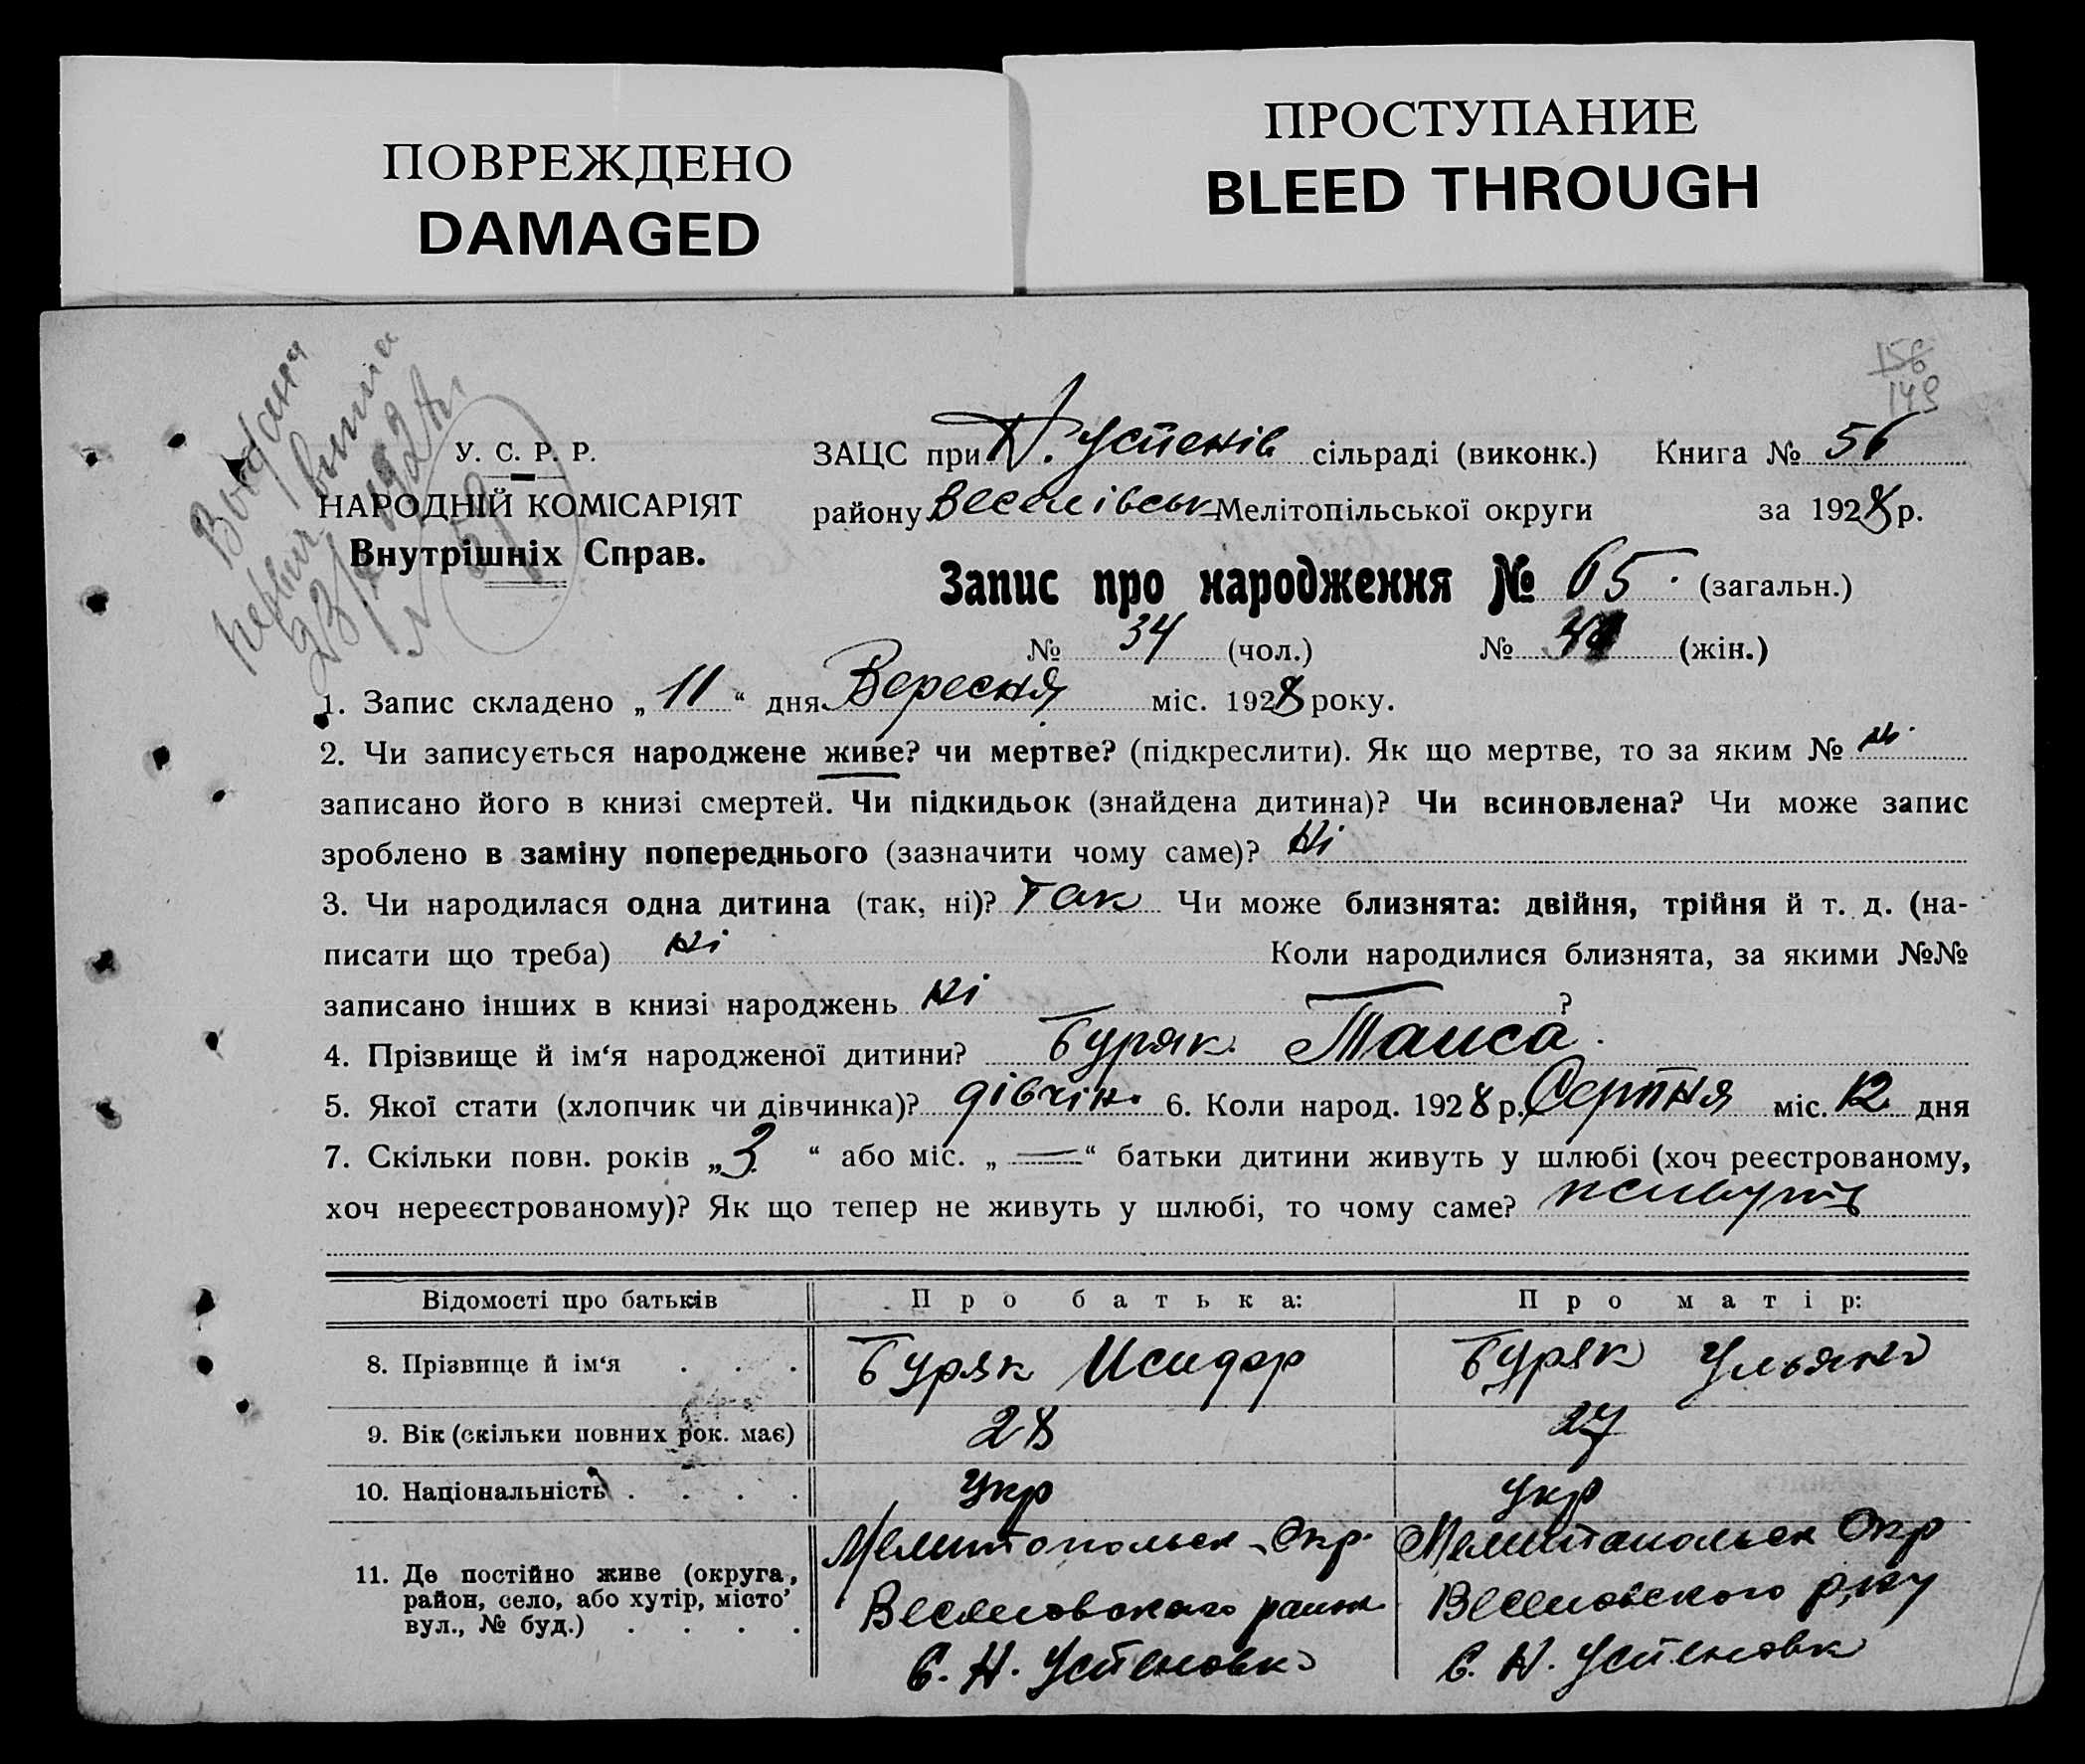 ПОВРЕЖДЕНО
DAMAGED
ПРОСТУПАНИЕ
BLEED THROUGH
156
149
У. С. Р. Р.
НАРОДНІЙ КОМІСАРІЯТ
Внутрішніх Справ.
ЗАЦС при Н. Успенів сільраді (виконк.) Книга № 56
району Веселівськ Мелітопільської округи за 1928 р.
Запис про народження № 65. (загальн.)
№ 34 (чол.) № (жін.)
1. Запис складено „ 11 “ дня Вересня міс. 1928 року.
2. Чи записується народжене живе? чи мертве? (підкреслити). Як що мертве, то за яким №
записано його в книзі смертей. Чи підкидьок (знайдена дитина)? Чи всиновлена? Чи може запис
зроблено в заміну попереднього (зазначити чому саме)? Ні
3. Чи народилася одна дитина (так, ні)? Так Чи може близнята: двійня, трійня й т. д. (на-
писати що треба) Ні Коли народилися близнята, за якими №№
записано інших в книзі народжень Ні ?
4. Прізвище й ім‘я народженої дитини? Буряк Таиса.
5. Якої стати (хлопчик чи дівчинка)? дівчін. 6. Коли народ. 1928 р. Серпня міс. 12 дня
7. Скільки повн. років „ 3 “ або міс. „ — “ батьки дитини живуть у шлюбі (хоч реєстрованому,
хоч нереєстрованому)? Як що тепер не живуть у шлюбі, то чому саме? живуть
Відомості про батьків Про батька: Про матір:
8. Прізвище й ім‘я . . . Буряк Исидор Буряк Ульяна
9. Вік (скільки повних рок. має) 28 27
10. Національність . . . . Укр Укр
11. Де постійно живе (округа, Мелитопольск Окр. Мелитапольск Окр
район, село, або хутір, місто’ Веселовскаго район Веселовского р-ну
вул., № буд.) . . . . С. Н. Успеновка С. Н. Успеновк